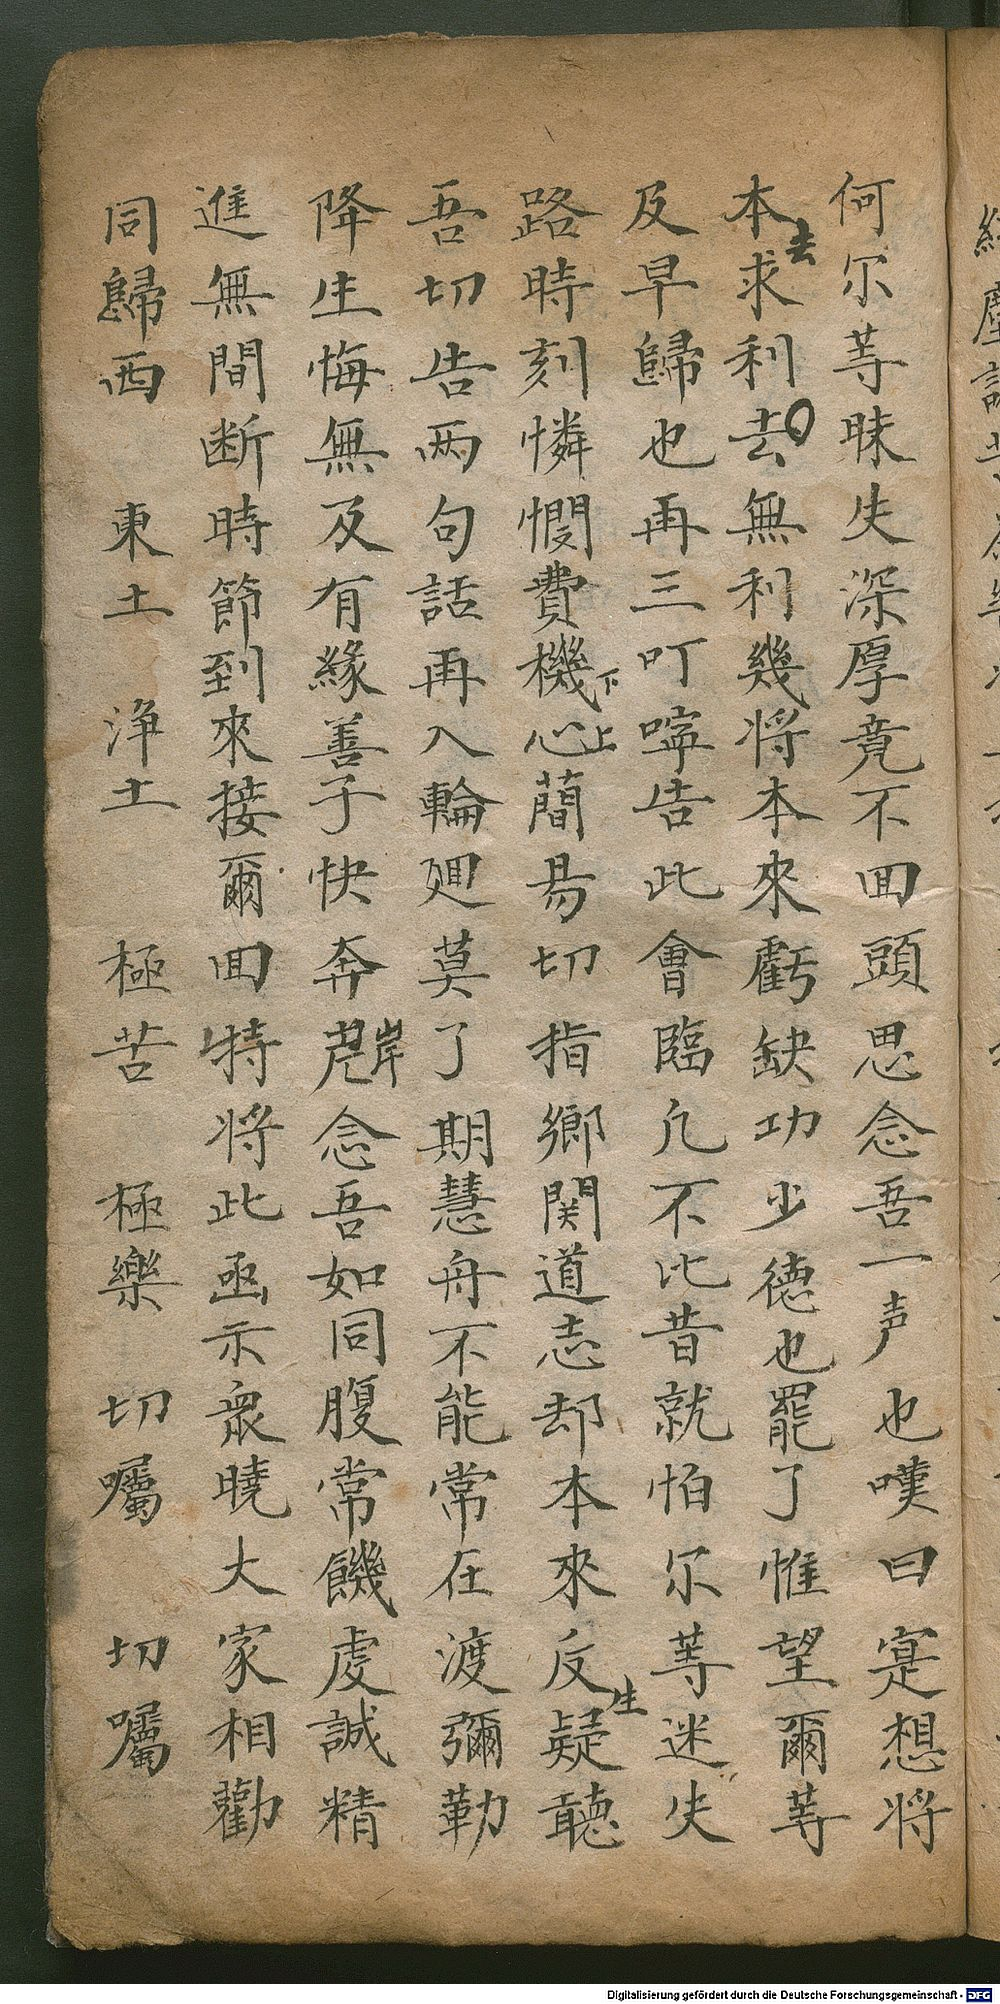 何尔等昧失深厚竟不回頭思念吾一声也嘆曰寔想将
本去求利去無利幾将本來虧缺功少德也罷了惟望爾等
及早歸也再三叮嚀告此會臨凢不比昔就怕尔等迷失
路時刻憐憫費機下心上蕳易切指鄉関道志却本來反疑生聽
吾切告两句話再入輪廻莫了期慧舟不能常在渡彌勒
降生悔無及有緣善子快奔岸念吾如同腹常饑虔誠精
進無間断時節到來接爾回特将此函示衆曉大家相勸
同歸西 東土 浄土 極苦 極樂 切囑 切囑
Digitalisierung gefördert durch die Deutsche Forschungsgemeinschaft - DFG